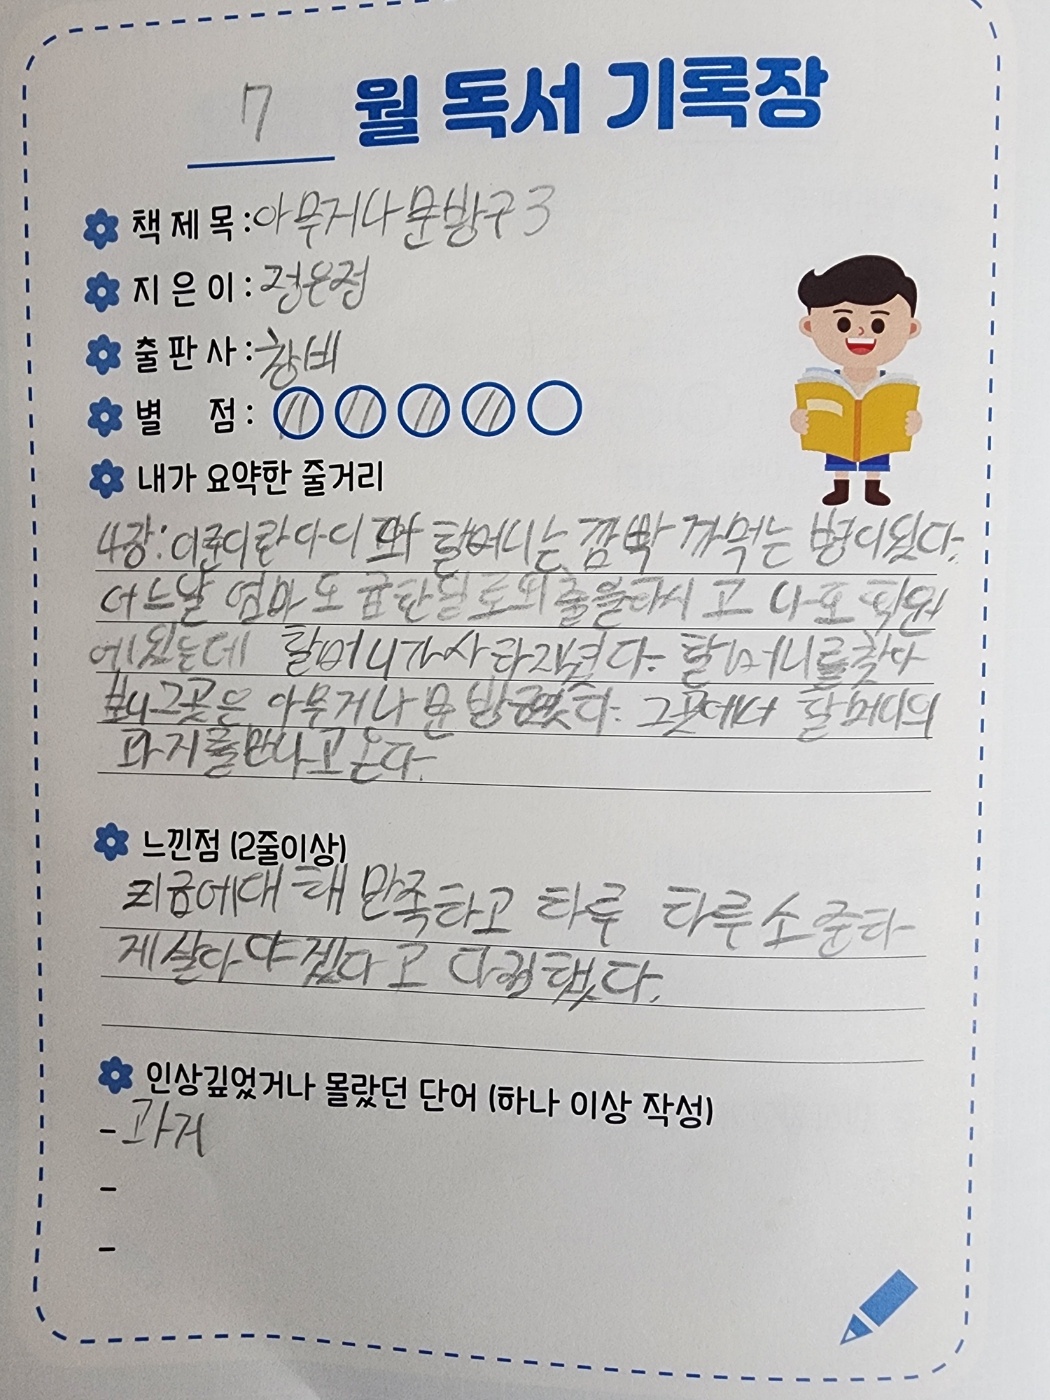 7 월 독서 기록장
책 제 목 : 아무거나 문방구 3
지 은 이 : 정은정
출 판 사 : 창비
별 점 :
내가 요약한 줄거리
4장: 이준이란 아이 와 할머니는 깜빡 까먹는 병이 있다.
어느날 엄마 도 급한일로 외출을 하시 고 나 도 학원
에 있는데 할머니가 사라지셨다. 할머니를 찾아
보니 그곳은 아무거나 문방구였다. 그곳에서 할머니의
과거를 만나고 온다.
느낀점 (2줄이상)
지금에 대해 만족하고 하루 하루 소중하
게 살아야 겠다고 다짐했다.
인상깊었거나 몰랐던 단어 (하나 이상 작성)
- 과거
-
-